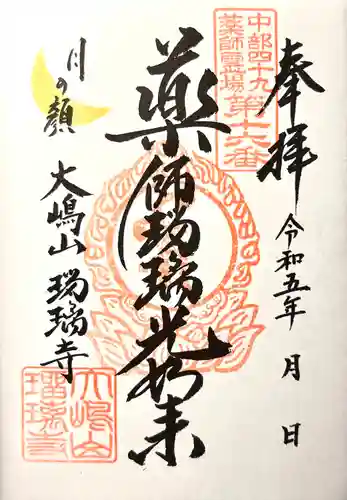 奉拝
令和五年 月 日
中部四十九
薬師霊場
第十六番
薬師瑠璃光如来
月の顔
大嶋山 瑠璃寺
大嶋山
瑠璃寺